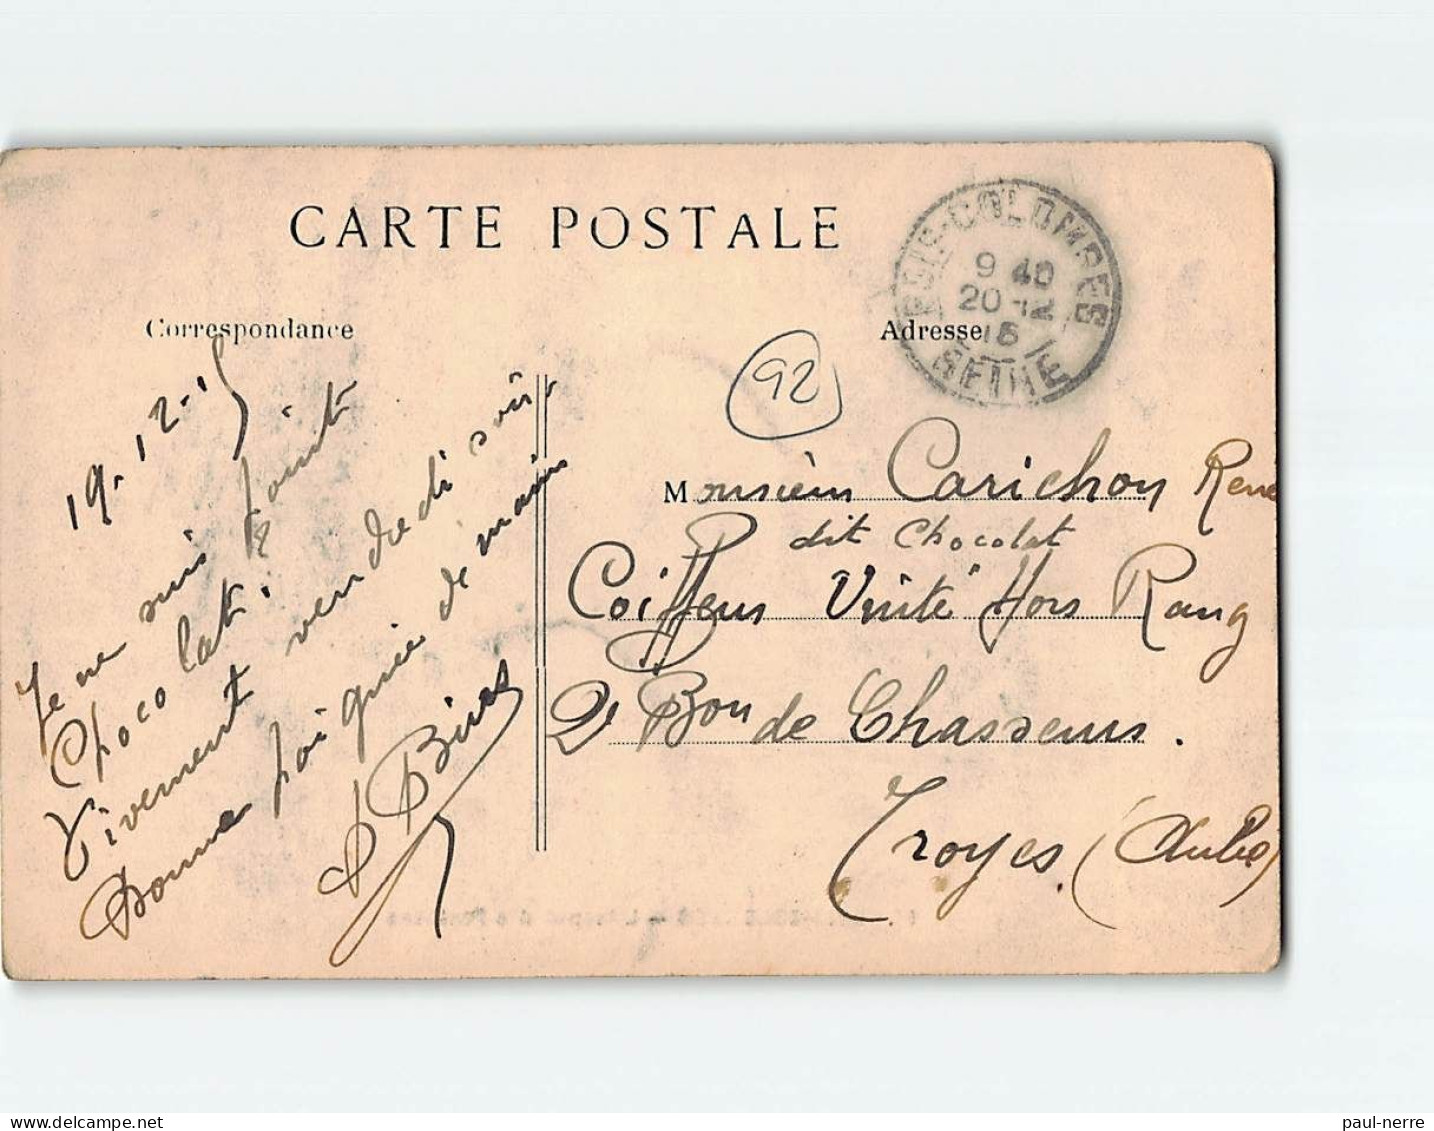 CARTE POSTALE
BOIS-COLOMBES
9 40
20 - 12
15
SEINE
Correspondance
Adresse
92
19.12.15
Je ne suis point
Chocolat.
Vivement vendredi soir
Bonne poignée de mains
Monsieur Carichon René
dit Chocolat
Coiffeur Unité Hors Rang
2e Bon de Chasseurs.
Troyes. (Aube)
paul-nerre